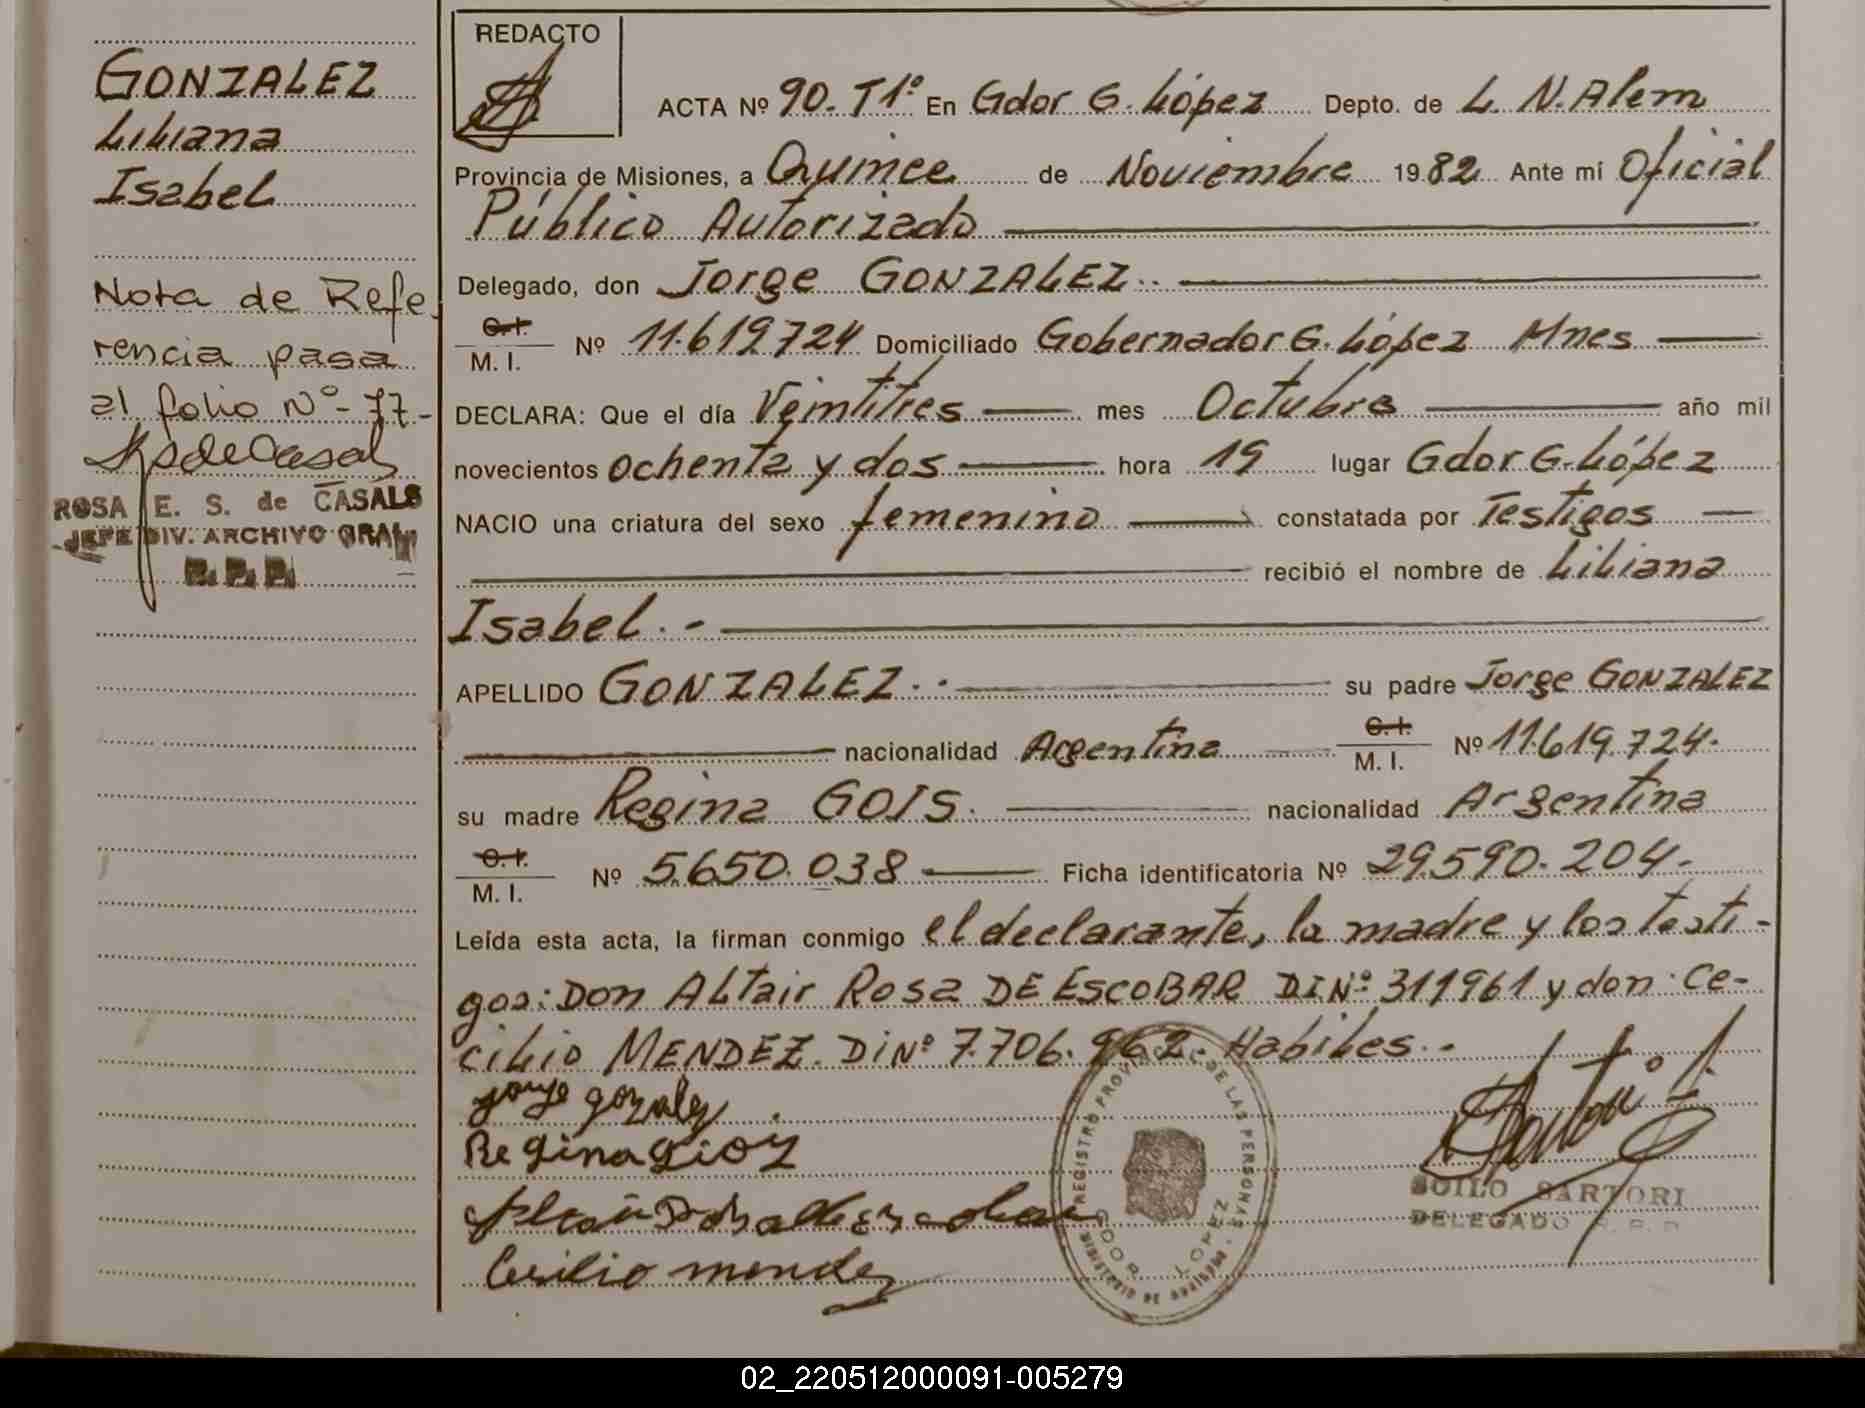 GONZALEZ
Liliana
Isabel
Nota de Refe
rencia pasa
al folio Nº- 77-
ROSA E. S. de CASALS
JEFE DIV. ARCHIVO GRAL
R. P. P.
REDACTO
ACTA Nº 90. T1º En Gdor G. López Depto. de L. N. Alem
Provincia de Misiones, a Quince de Noviembre 1982 Ante mí Oficial
Público Autorizado
Delegado, don Jorge GONZALEZ..
C.I.
M. I. Nº 11.619.724 Domiciliado Gobernador G. López Mnes
DECLARA: Que el día Veintitres mes Octubre año mil
novecientos ochenta y dos hora 19 lugar Gdor G. López
NACIO una criatura del sexo femenino constatada por Testigos
recibió el nombre de Liliana
Isabel.-
APELLIDO GONZALEZ.. su padre Jorge GONZALEZ
nacionalidad Argentina C.I. M. I. Nº 11.619.724.
su madre Regina GOIS. nacionalidad Argentina
C.I.
M. I. Nº 5.650.038 Ficha identificatoria Nº 29.590.204.-
Leída esta acta, la firman conmigo el declarante, la madre y los testi-
gos: Don Altair Rosa DE ESCOBAR DINº 311961 y don Ce-
cilio MENDEZ. DiNº 7.706.962. Habiles..
jorge gonzalez
Regina gioz
Cecilio mendez
REGISTRO PROVINCIAL DE LAS PERSONAS
GDOR. LOPEZ
ZOILO SARTORI
DELEGADO R. P. P.
02_220512000091-005279